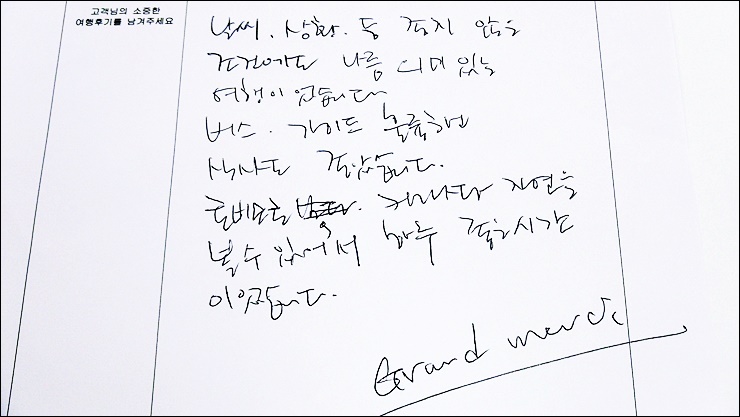 고객님의 소중한
여행후기를 남겨주세요
날씨. 상황. 등 좋지 않은
조건에도 나름 의미있는
여행이었습니다
버스. 가이드 훌륭하고
식사도 좋았습니다.
캐나다 자연을
볼수 있어서 아주 좋은시간
이었습니다.
Grand merci